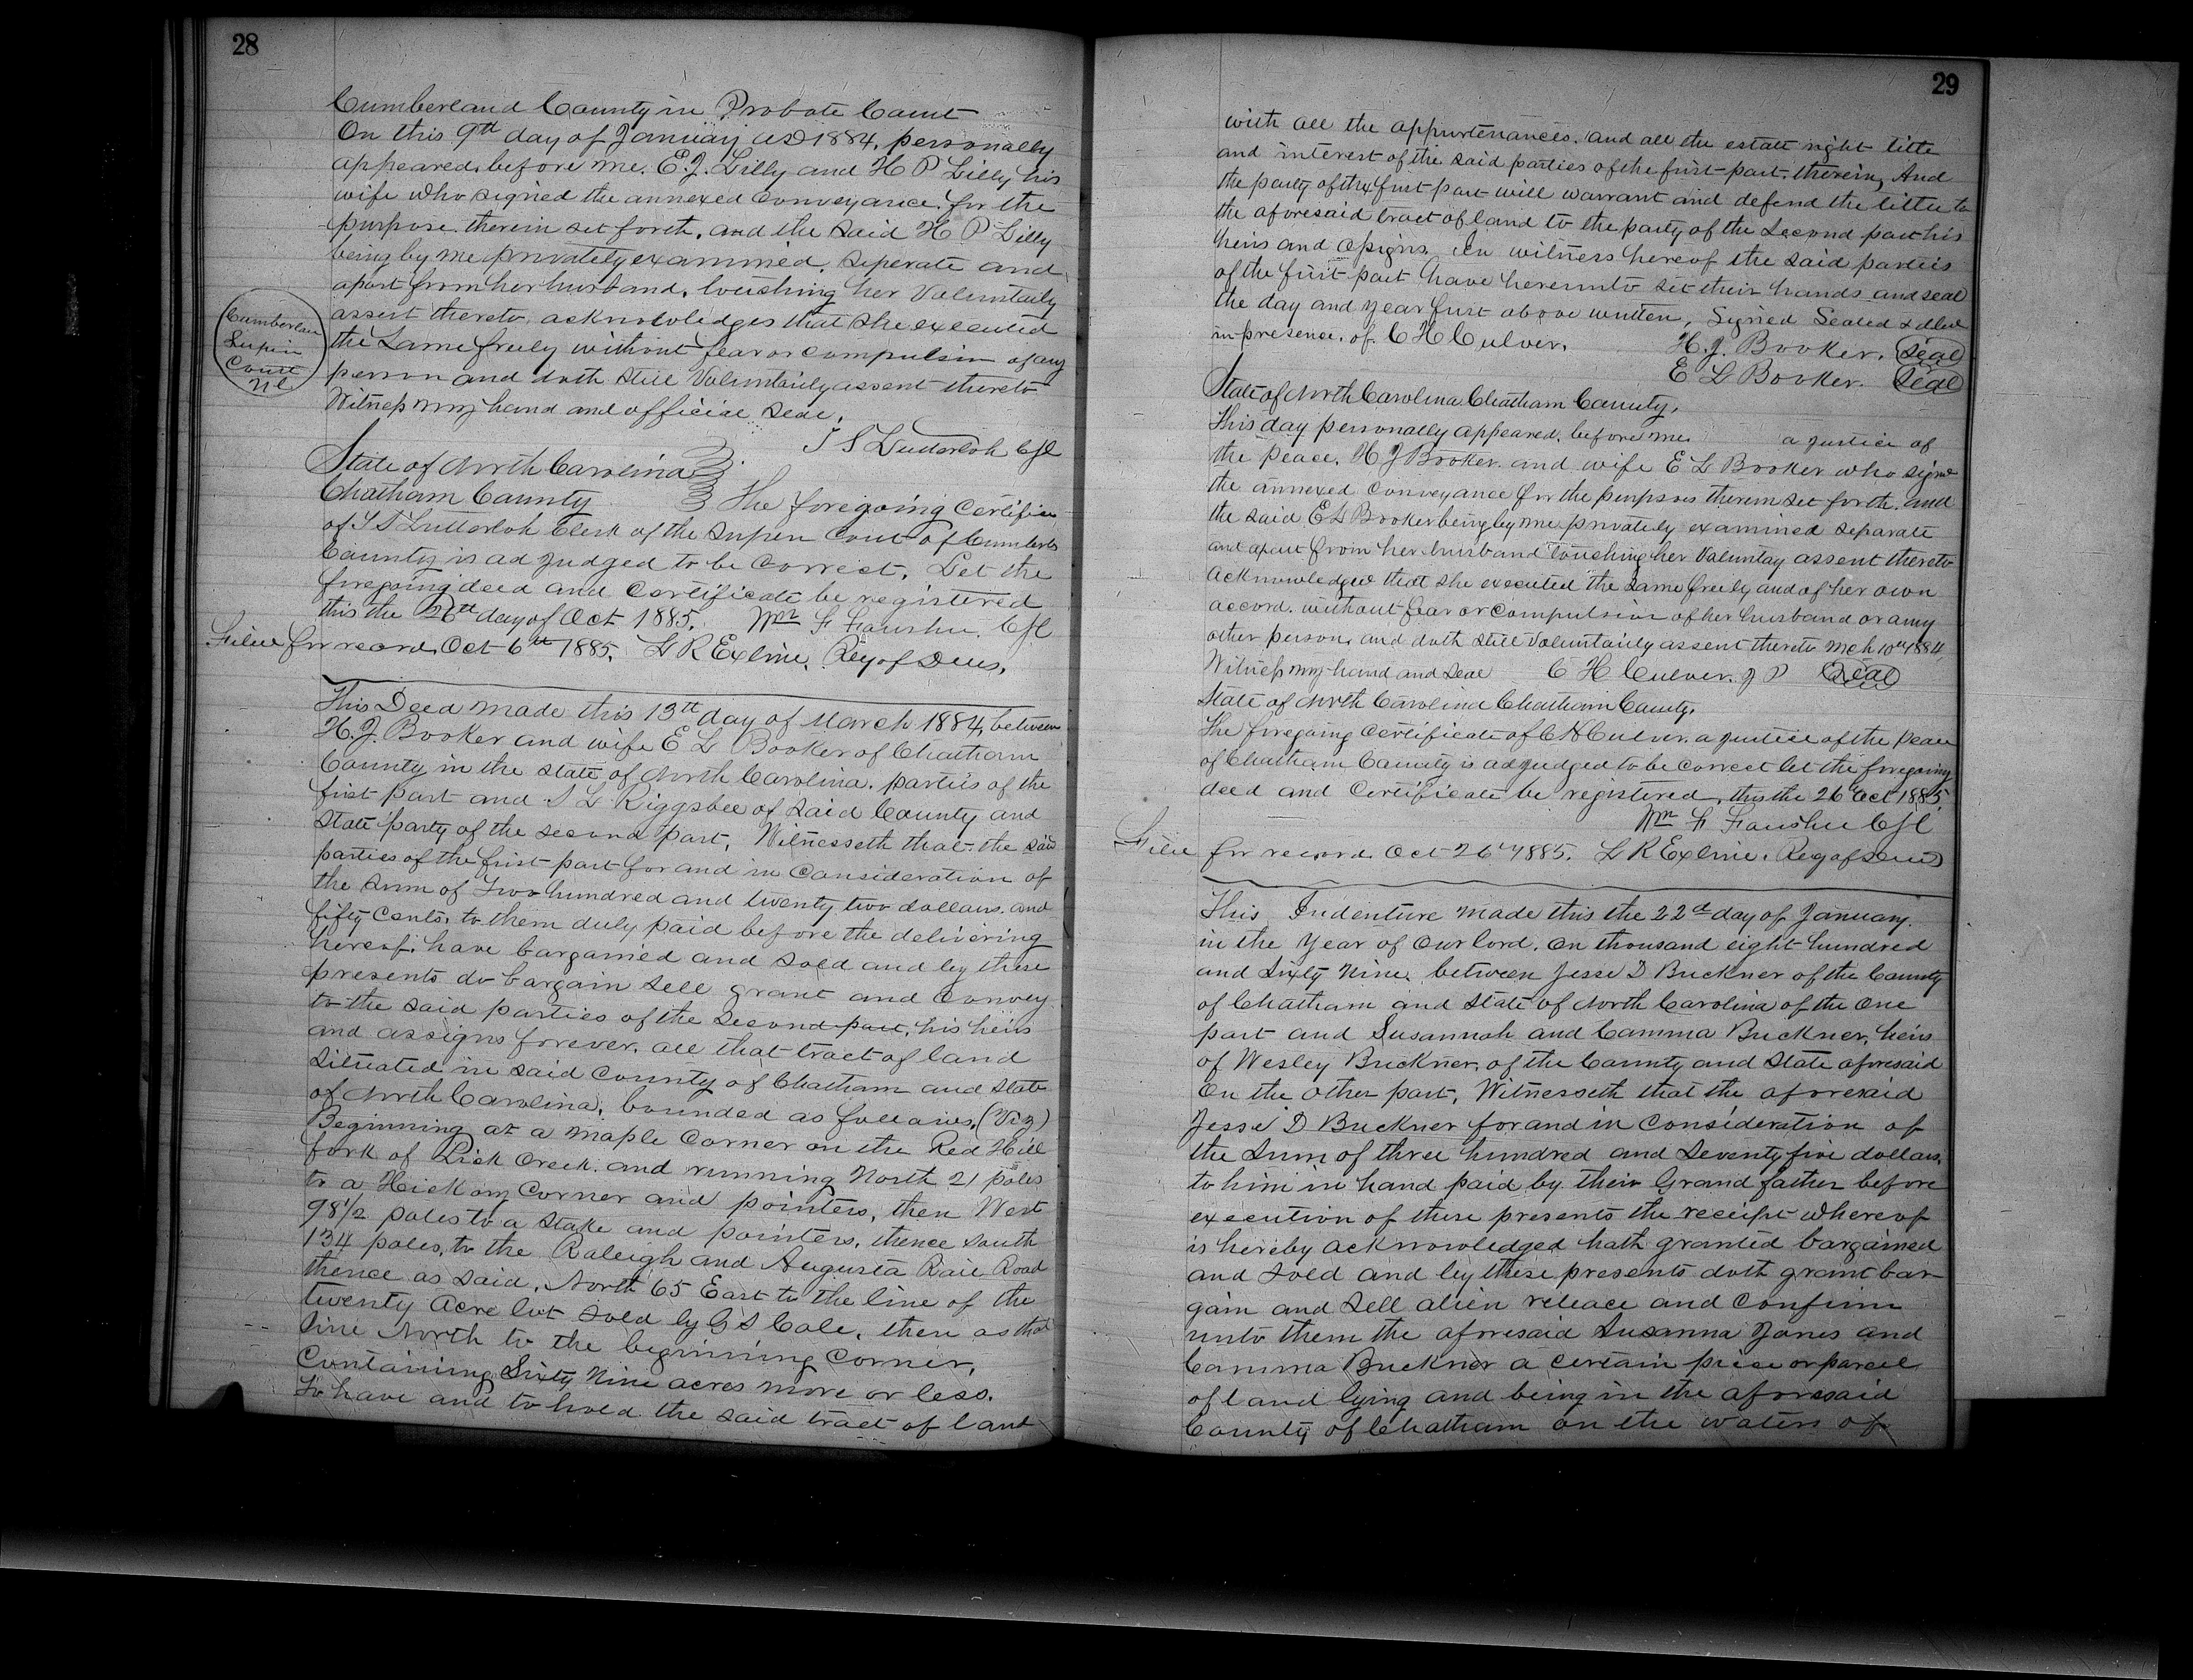 28
Cumberland County in Probate Court
On this 9th day of January AD 1884, personally
appeared before me. E. J. Lilly and H P Lilly his
wife who signed the annexed conveyance. for the
purpose therein set forth. and the said H P Lilly
being by me privately examined. seperate and
apart from her husband. touching her Voluntaily
assent thereto acknowledges that she executed
the same freely without fear or compulsion of any
person and doth still Voluntarily assent thereto
Witness my hand and official seal.
Cumberlan
Superi
Court
NC
T S Lutterloh CSC
State of North Carolina
Chatham County
The foregoing Certifica
of T S Lutterloh Clerk of the Super Court of Cumberla
County is adjudged to be correct. Let the
foregoing deed and certificate be registered
this the 26th day of Oct 1885. Wm F Foushee. CSC
Filed for record Oct 6th 1885. L R Exline. Reg of Deeds,
This Deed made this 13th day of March 1884, between
H. J. Booker and wife E L Booker of Chatham
County in the state of North Carolina. parties of the
first part and S L Riggsbee of said County and
State party of the second part, Witnesseth that. the said
parties of the first part for and in consideration of
the sum of Two hundred and twenty two dollars. and
fifty cents. to them duly paid before the delivering
hereof. have bargained and sold and by these
presents do bargain sell grant and convey
to the said parties of the second part, his heirs
and assigns forever. all that tract of land
situated in said County of Chatham and state
of North Carolina, bounded as follows, (Viz)
Beginning at a maple corner on the Red Hill
fork of Lick Creek. and running North 21 poles
to a Hickory corner and pointers, then West
98 1/2 poles to a stake and pointers, thence south
134 poles, to the Raleigh and Augusta Rail Road
thence as said, North 65 East to the line of the
twenty acre lot sold by G S Cole, then as that
line North to the beginning corner,
Containing Sixty Nine acres more or less.
To have and to hold the said tract of land
29
with all the appurtenances. and all the estate right title
and interest of the said parties of the first part. therein, And
the party of the first part will warrant and defend the title to
the aforesaid tract of land to the party of the second part his
heirs and assigns. In witness hereof the said parties
of the first part have hereunto set their hands and seal
the day and year first above written, Signed Sealed & dlivd
in presence. of. C H Culver. H. J. Booker. Seal
E L Booker. Seal
State of North Carolina Chatham County,
This day personally appeared. before me. a justice of
the peace. H J Booker. and wife E L Booker who signd
the annexed conveyance for the purpses therein set forth. and
the said E L Booker being by me privately examined separate
and apart from her husband touching her Voluntay assent thereto
acknowledged that she executed the same freely and of her own
accord. without fear or compulsion of her husband or any
other person, and doth still Voluntarily assent thereto Mch 10th 1884,
Witness my hand and seal C H Culver. J P Seal
State of North Carolina Chatham County,
The foregoing certificate of C H Culver. a justice of the peace
of Chatham County is adjudged to be correct let the foregoing
deed and certificate be registered, this the 26th Oct 1885,
Wm F Foushee CSC
Filed for record Oct 26th 1885. L R Exline. Reg of Deeds
This Indenture made this the 22d day of January.
in the year of our lord. on thousand eight hundred
and Sixty Nine. between Jesse D Buckner of the County
of Chatham and state of North Carolina of the one
part and Susannah and Camma Buckner, heirs
of Wesley Buckner, of the County and State aforesaid
On the other part, Witnesseth that the aforesaid
Jesse D Buckner for and in consideration of
the sum of three hundred and Seventy five dollars,
to him in hand paid by their Grand father before
execution of these presents the receipt whereof
is hereby acknowledged hath granted bargained
and sold and by these presents doth grant bar-
gain and sell alien releace and confirm
unto them the aforesaid Susanna Jones and
Camma Buckner a certain piece or parcel
of land lying and being in the aforesaid
County of Chatham on the waters of